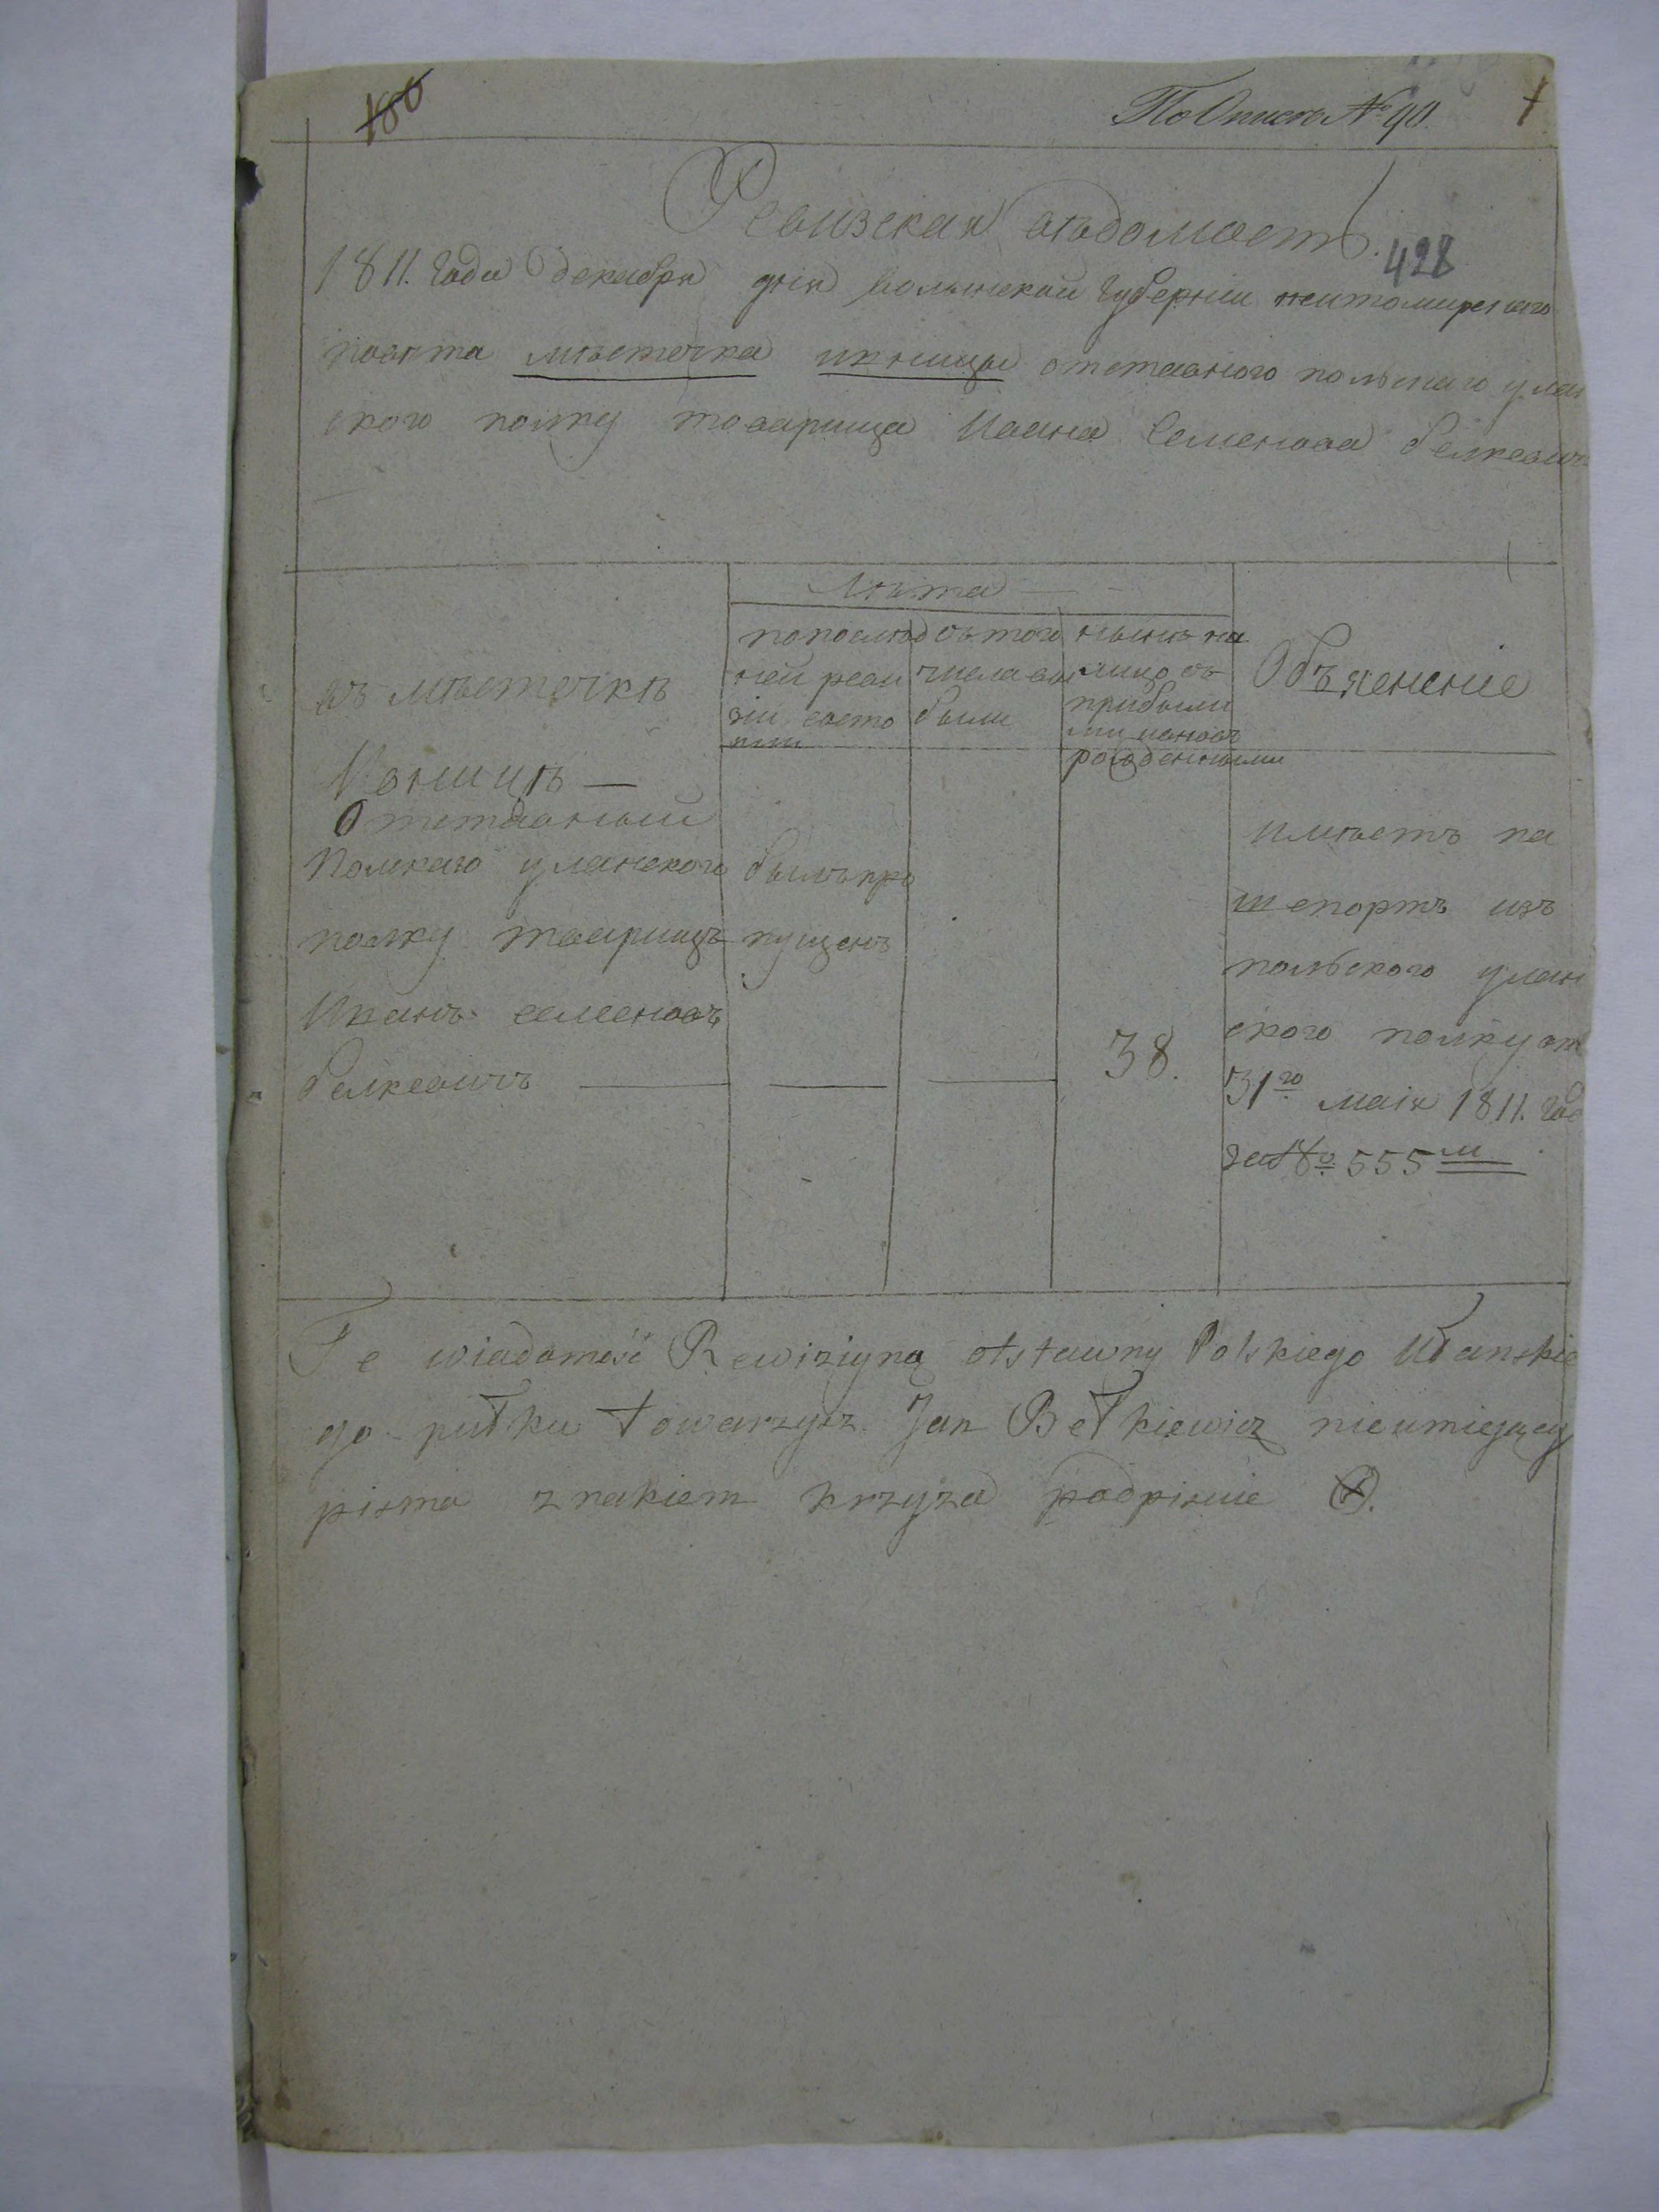 180
По Описи № 90.
1
Ревизская вѣдомость.
428
1811. Года декабря дня волынской Губернии житомирского
повѣта мѣстечка ивницы отставного польскаго улан
ского полку товарища Ивана Семенова белкевича
Лѣта
въ мѣстечкѣ
Ивницѣ —
по послѣд
ней реви
зіи состо
яли
съ того
числа вы
были
нынѣ на
лицо съ
прибыли
ми и новъ
рожденными
Объяснение
Отставный
Полкаго уланского
полку товарищъ
Иванъ семеновъ
белкевичъ
былъ про
пущенъ
38.
имѣетъ па
шепортъ изъ
польского улан
ского полку отъ
31го маія 1811. год
за № 555м
Te wiadomość Rewizyiną otstawny Polskiego Ułanskie
go pułku towarzysz Jan Bełkiewicz nieumiejący
pisma znakiem krzyża podpisuie X.